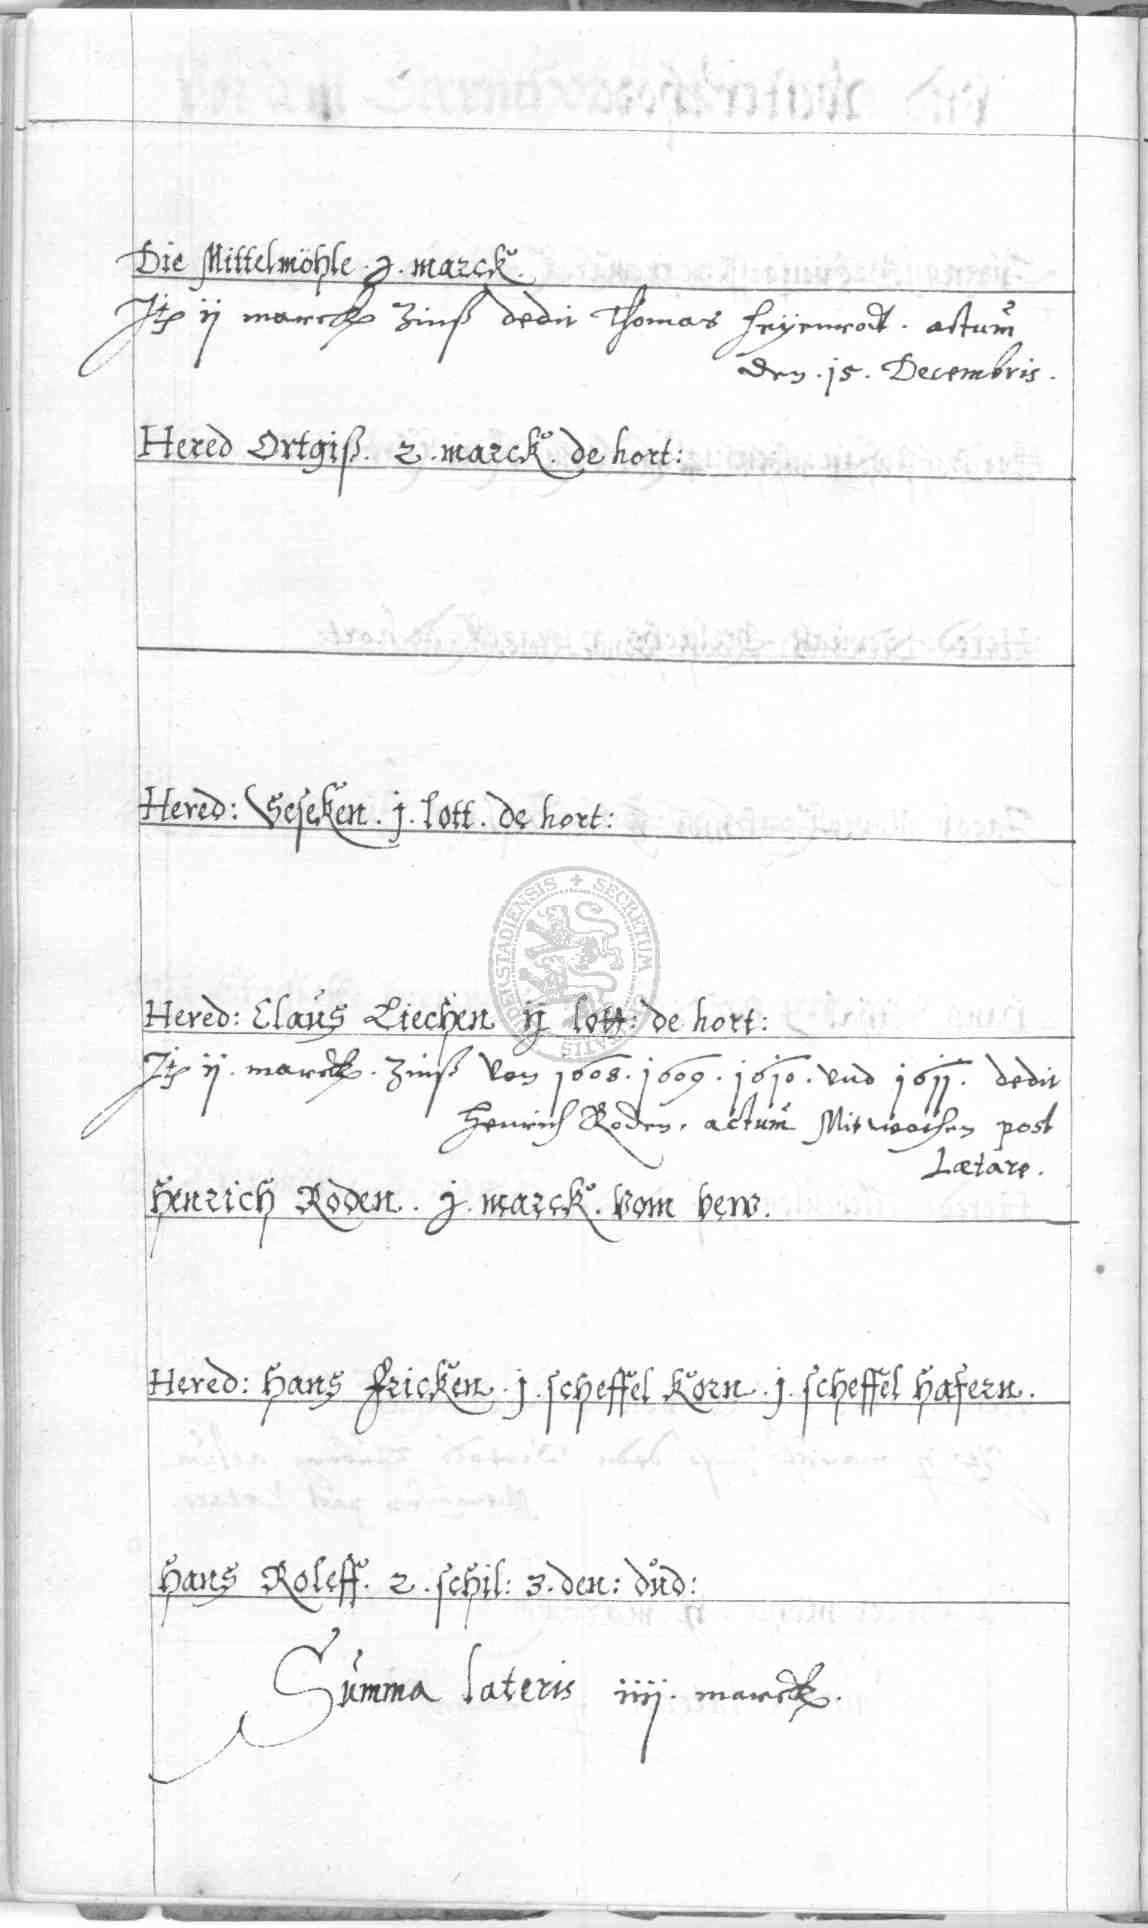 Die Mittelmöhle . j . marck.
Itp ij marck Zinß dedit Thomas Heyenrodt . actum
den . 15 . Decembris .
Hered Ortgiß . 2 . marck . de hort:
Hered: Geseken . j . lott . de hort:
Hered: Claus Liechen ij lott: de hort:
Itp ij . marck . Zinß von 1608 . 1609 . 1610 . vnd 1611 . dedit
Henrich Roden . actum Mitwochen post
Lætare .
Henrich Roden . j . marck . Vom
Hered: Hans Fricken . j . scheffel Korn . j . scheffel Hafern .
Hans Roleff . 2 . schil: 3 . den: dud:
Summa lateris iiij . marck .
SECRETUM